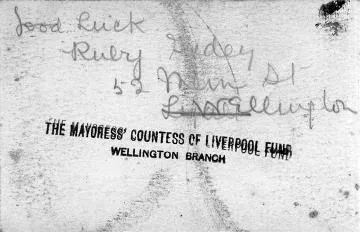 Good Luck
Ruby
52 Main St
Wellington
THE MAYORESS' COUNTESS OF LIVERPOOL FUND
WELLINGTON BRANCH